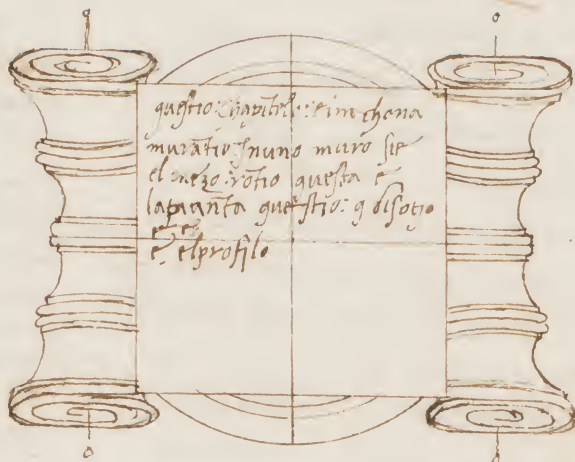 questio: chapitele: e in chona
muratio: in uno muro sie
el mezo: rotio questa e
la pianta questio: q disotio
e elprofilo